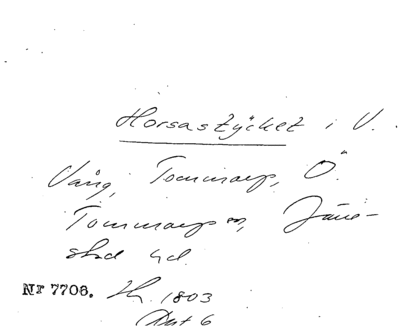 Horsastycket i V.
Vång, Tommarp, Ö.
Tommarps sn, Järre-
stad hd.
Nr 7706. Lh. 1803
Akt 6